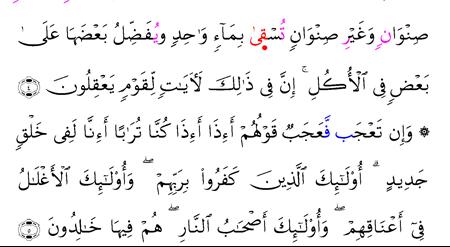 صِنْوَانٍ وَغَيْرِ صِنْوَانٍ تُسْقِىٰ بِمَآءٍ وَٰحِدٍ وَيُفَضِّلُ بَعْضَهَا عَلَىٰ
بَعْضٍ فِى ٱلْأُكُلِ ۚ إِنَّ فِى ذَٰلِكَ لَأٓيَٰتٍ لِّقَوْمٍ يَعْقِلُونَ ٤
۞ وَإِن تَعْجَب فَّعَجَبٌ قَوْلُهُمْ أَءِذَا كُنَّا تُرَٰبًا أَءِنَّا لَفِى خَلْقٍ
جَدِيدٍ ۗ أُو۟لَٰٓئِكَ ٱلَّذِينَ كَفَرُوا۟ بِرَبِّهِمْ ۖ وَأُو۟لَٰٓئِكَ ٱلْأَغْلَٰلُ
فِىٓ أَعْنَاقِهِمْ ۖ وَأُو۟لَٰٓئِكَ أَصْحَٰبُ ٱلنَّارِ ۖ هُمْ فِيهَا خَٰلِدُونَ ٥